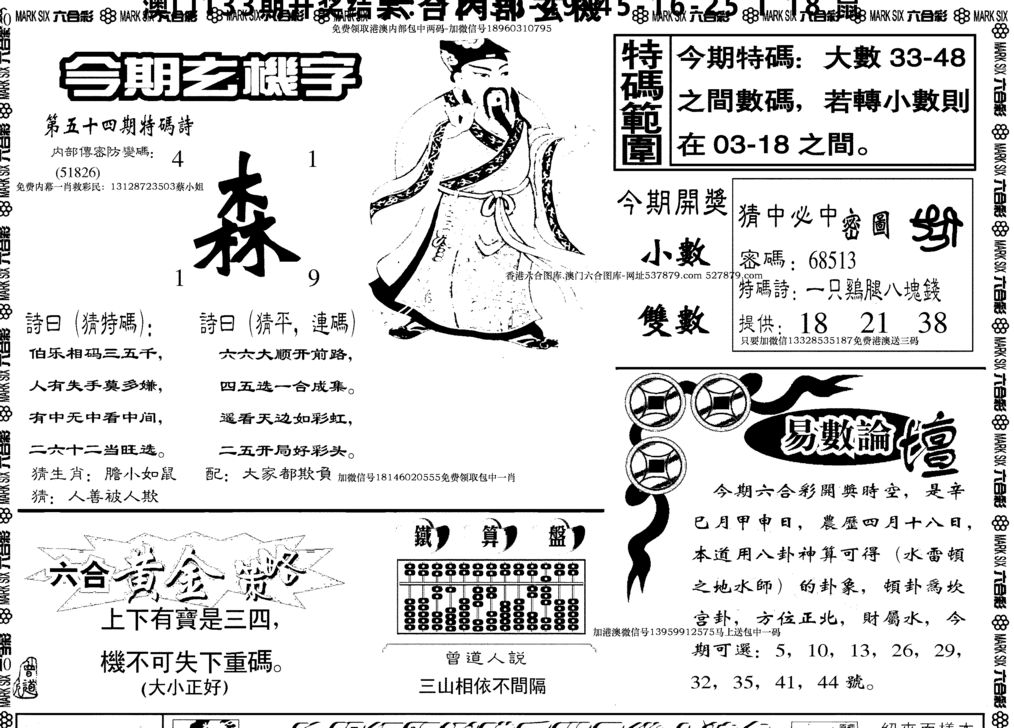 MARK SIX 六合彩 MARK SIX 六合彩 MARK SIX 六合彩 MARK SIX 六合彩 MARK SIX 六合彩 MARK SIX
免费领取港澳内部包中两码-加微信号18960310795
今期玄機字
第五十四期特碼詩
内部傳密防變碼：
(51826)
免费内幕一肖救彩民：13128723503蔡小姐
4 1
森
1 9
詩曰（猜特碼）：
伯乐相码三五千，
人有失手莫多嫌，
有中无中看中间，
二六十二当旺选。
猜生肖：膽小如鼠
猜：人善被人欺
詩曰（猜平，連碼）
六六大顺开前路，
四五选一合成集。
遥看天边如彩虹，
二五开局好彩头。
配：大家都欺負
加微信号18146020555免费领取包中一肖
特碼範圍
今期特碼：大數 33-48
之間數碼，若轉小數則
在 03-18 之間。
今期開獎
小數
雙數
香港六合图库.澳门六合图库-网址537879.com 527879.com
猜中必中密圖
密碼：68513
特碼詩：一只鷄腿八塊錢
提供：18 21 38
只要加微信13328535187免费港澳送三码
易數論壇
今期六合彩開獎時空，是辛
巳月甲申日，農歷四月十八日，
本道用八卦神算可得（水雷頓
之地水師）的卦象，頓卦爲坎
宫卦，方位正北，財屬水，今
期可選：5，10，13，26，29，
32，35，41，44 號。
加港澳微信号13959912575马上送包中一码
六合黄金策略
上下有寶是三四，
機不可失下重碼。
(大小正好)
鐵算盤
曾道人説
三山相依不間隔
曾道